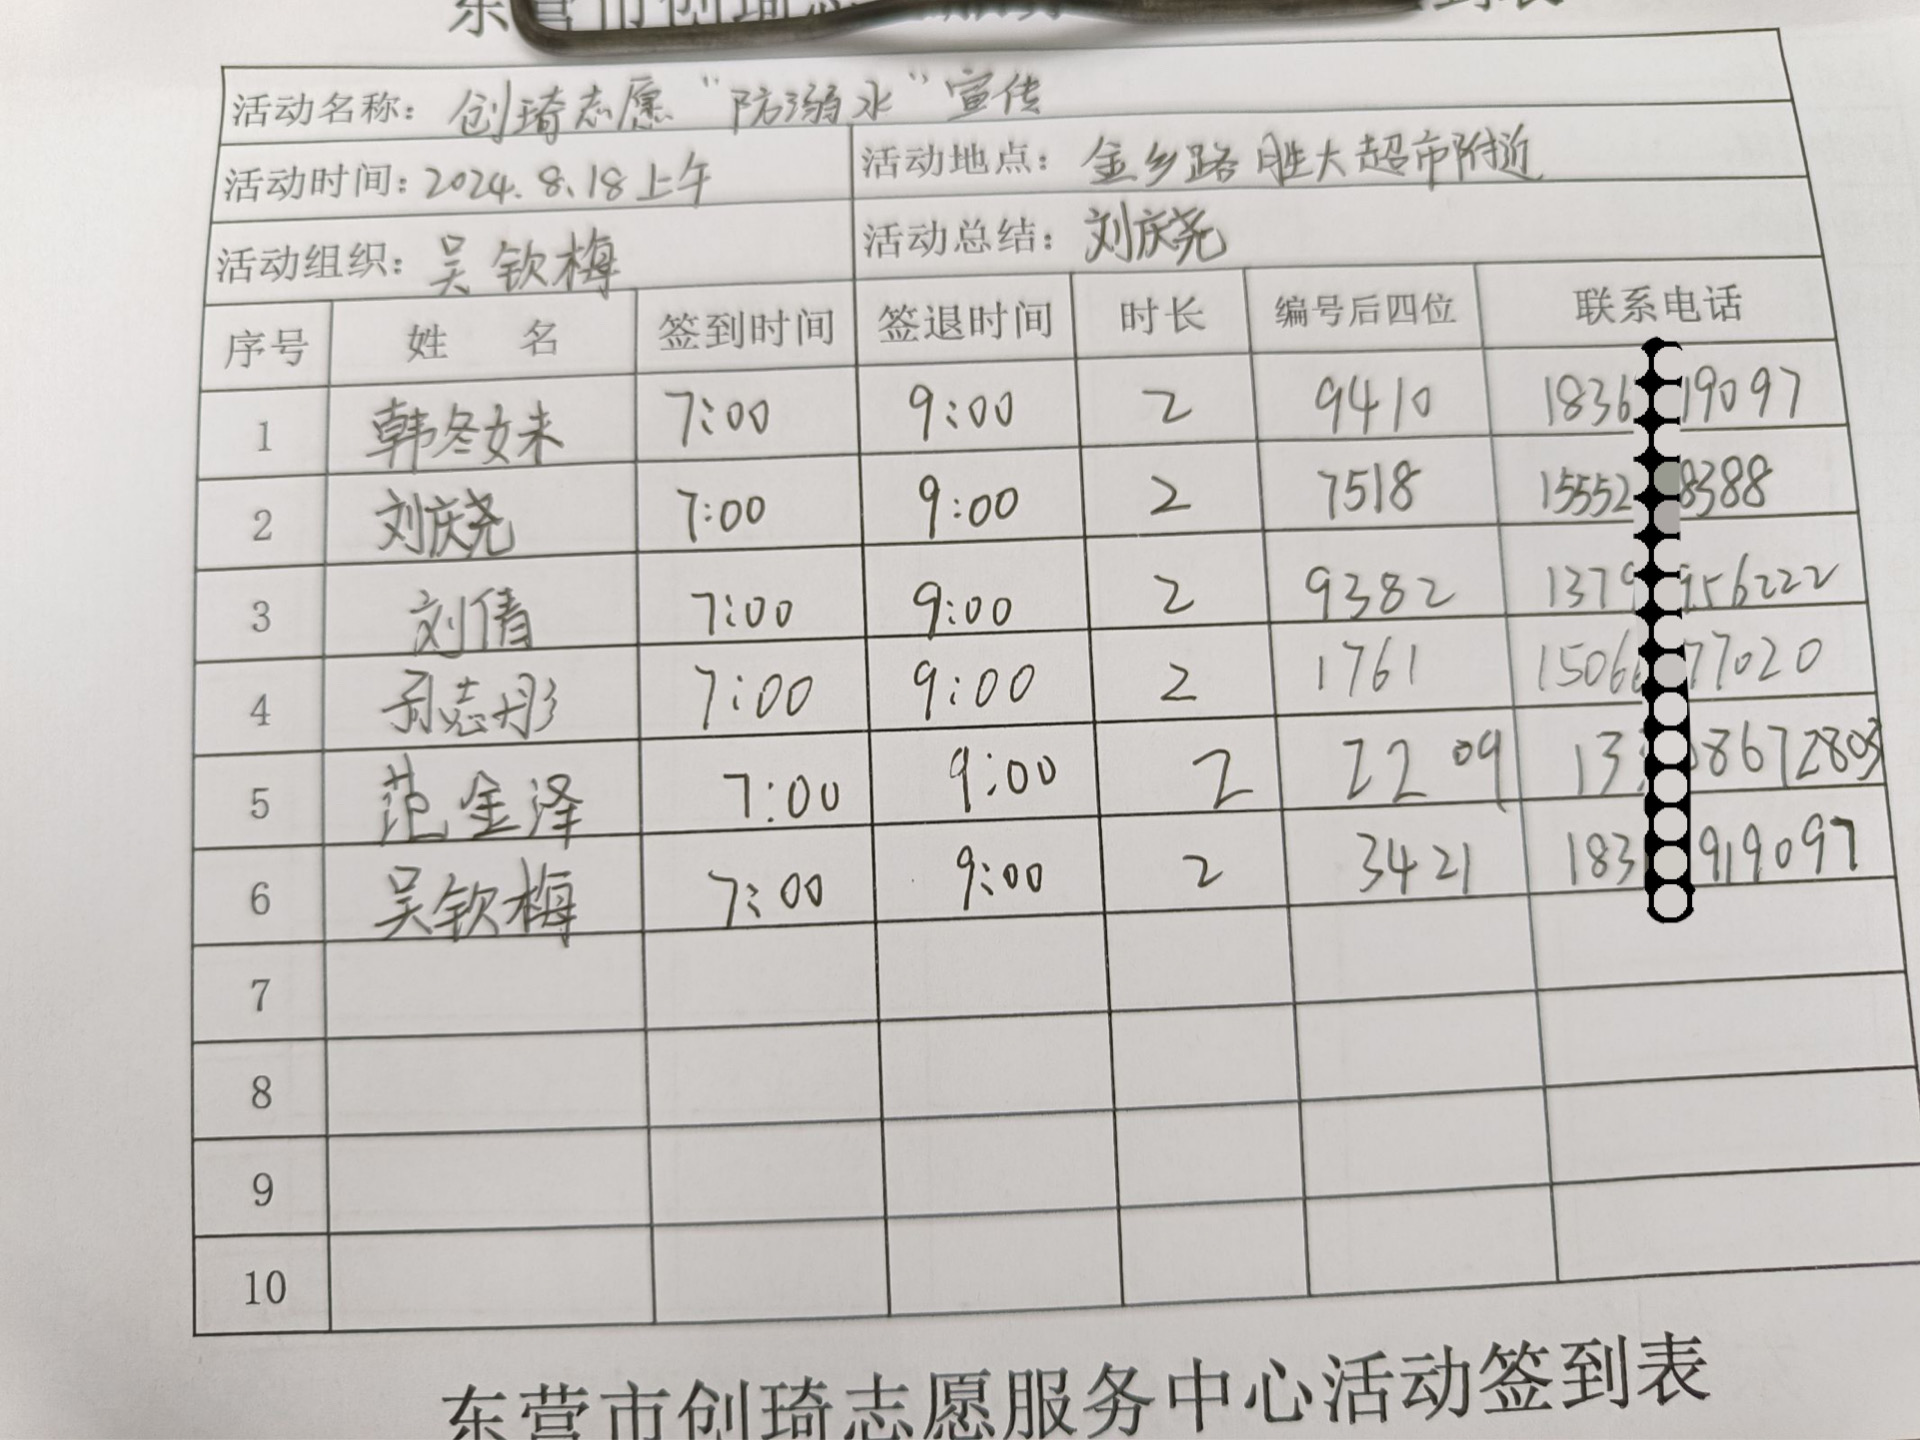 活动名称：创琦志愿“防溺水”宣传
活动时间：2024.8.18上午 活动地点：金乡路胜大超市附近
活动组织：吴钦梅 活动总结：刘庆尧
序号 姓 名 签到时间 签退时间 时长 编号后四位 联系电话
1 韩冬妹 7:00 9:00 2 9410 1836 19097
2 刘庆尧 7:00 9:00 2 7518 15552 8388
3 刘倩 7:00 9:00 2 9382 1379 956222
4 孙志彤 7:00 9:00 2 1761 1506 77020
5 范金泽 7:00 9:00 2 2209 13 8672803
6 吴钦梅 7:00 9:00 2 3421 183 919097
7
8
9
10
东营市创琦志愿服务中心活动签到表